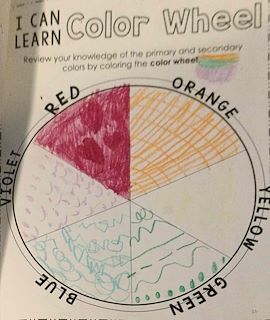 I CAN
LEARN
Color Wheel
Review your knowledge of the primary and secondary
colors by coloring the color wheel.
RED
ORANGE
YELLOW
GREEN
BLUE
VIOLET